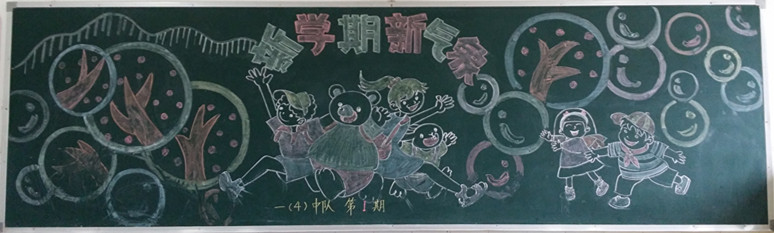 新学期新气象
一(4)中队 第1期